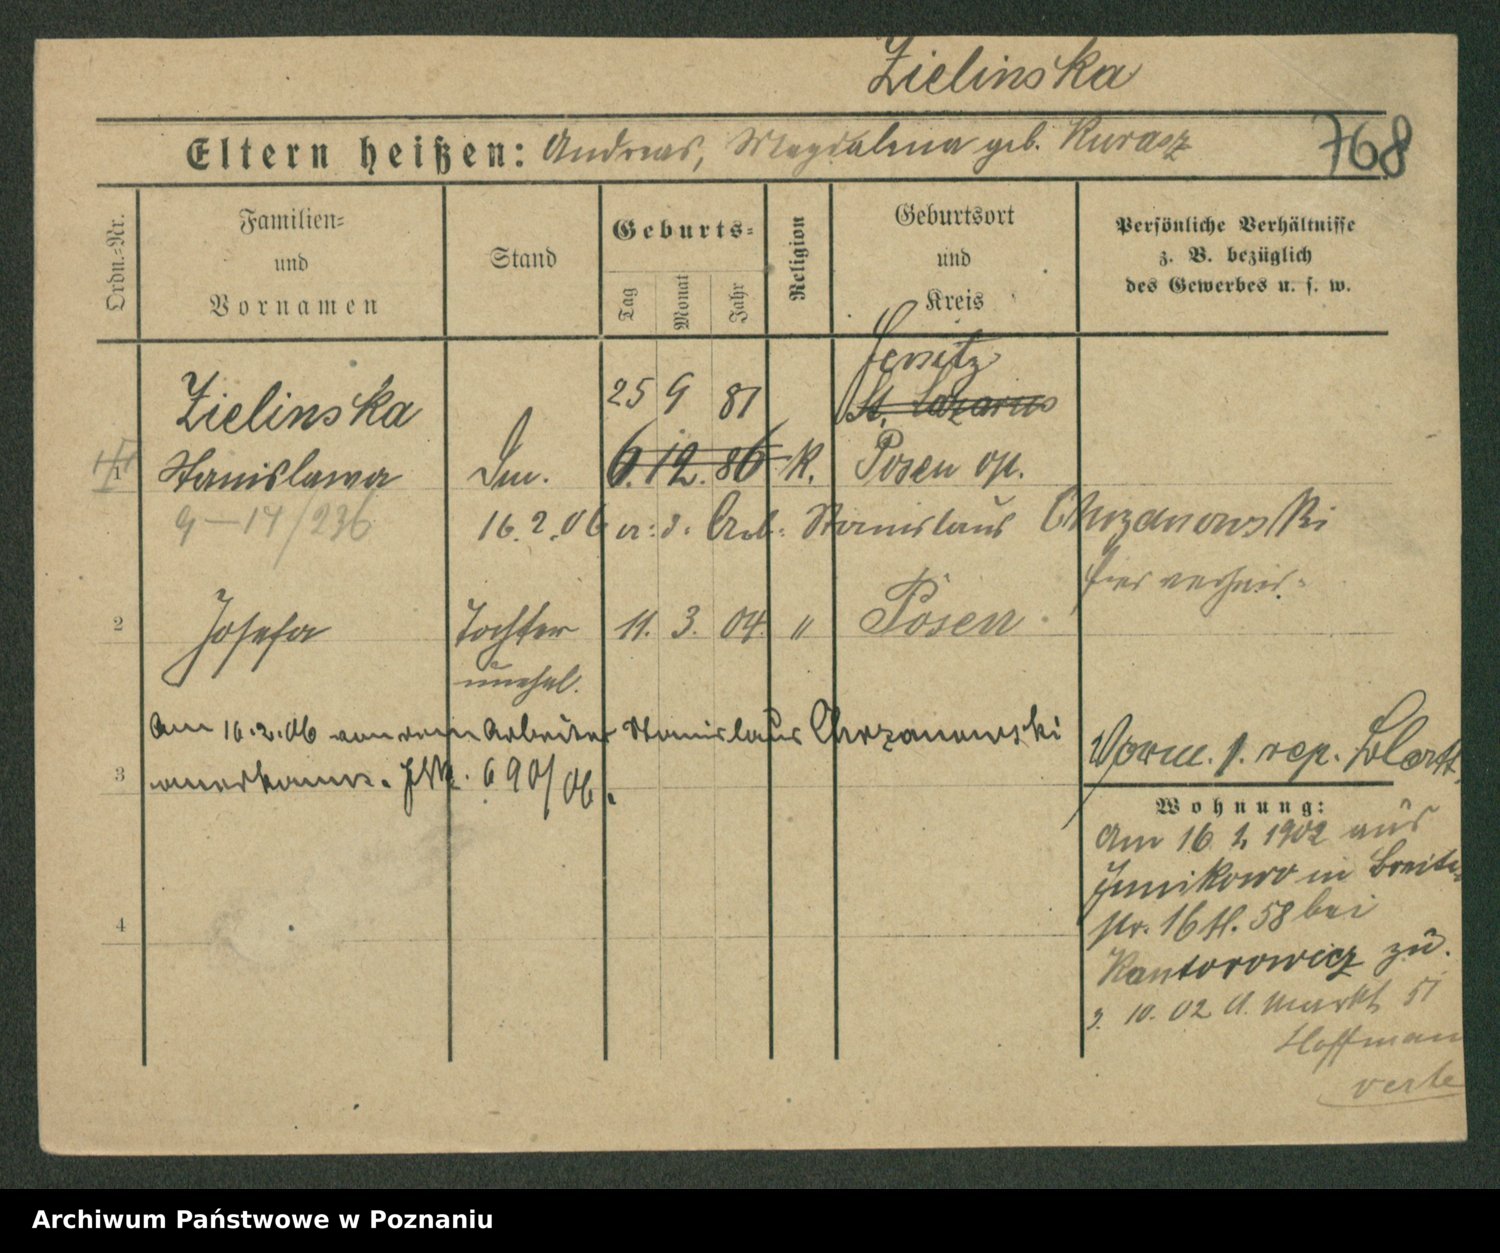 Zielinska
Eltern heißen: Andreas, Magdalena geb. Kurasz
768
Ordn.-Nr.
Familien-
und
Vornamen
Stand
Geburts-
Tag
Monat
Jahr
Religion
Geburtsort
und
Kreis
Persönliche Verhältnisse
z. B. bezüglich
des Gewerbes u. s. w.
Jersitz
Zielinska 25 9 81 St. Lazarus
1 Stanislawa 6. 12. 86 K. Posen
9-14/236 16.2.06 Arb. Stanislaus Chrzanowski
hier verheir.
2 Josefa Tochter 11. 3. 04. " Posen
unehel.
Am 16.2.06 von dem Arbeiter Stanislaus Chrzanowski
3 anerkannt. 690/06.
rep. Blatt
Wohnung:
Am 16 1902 aus
Junikowo in Breite-
str. 16 II. 58 bei
Kantorowicz zu.
4
3. 10. 02 A. Markt 51
Hoffmann
verte
Archiwum Państwowe w Poznaniu